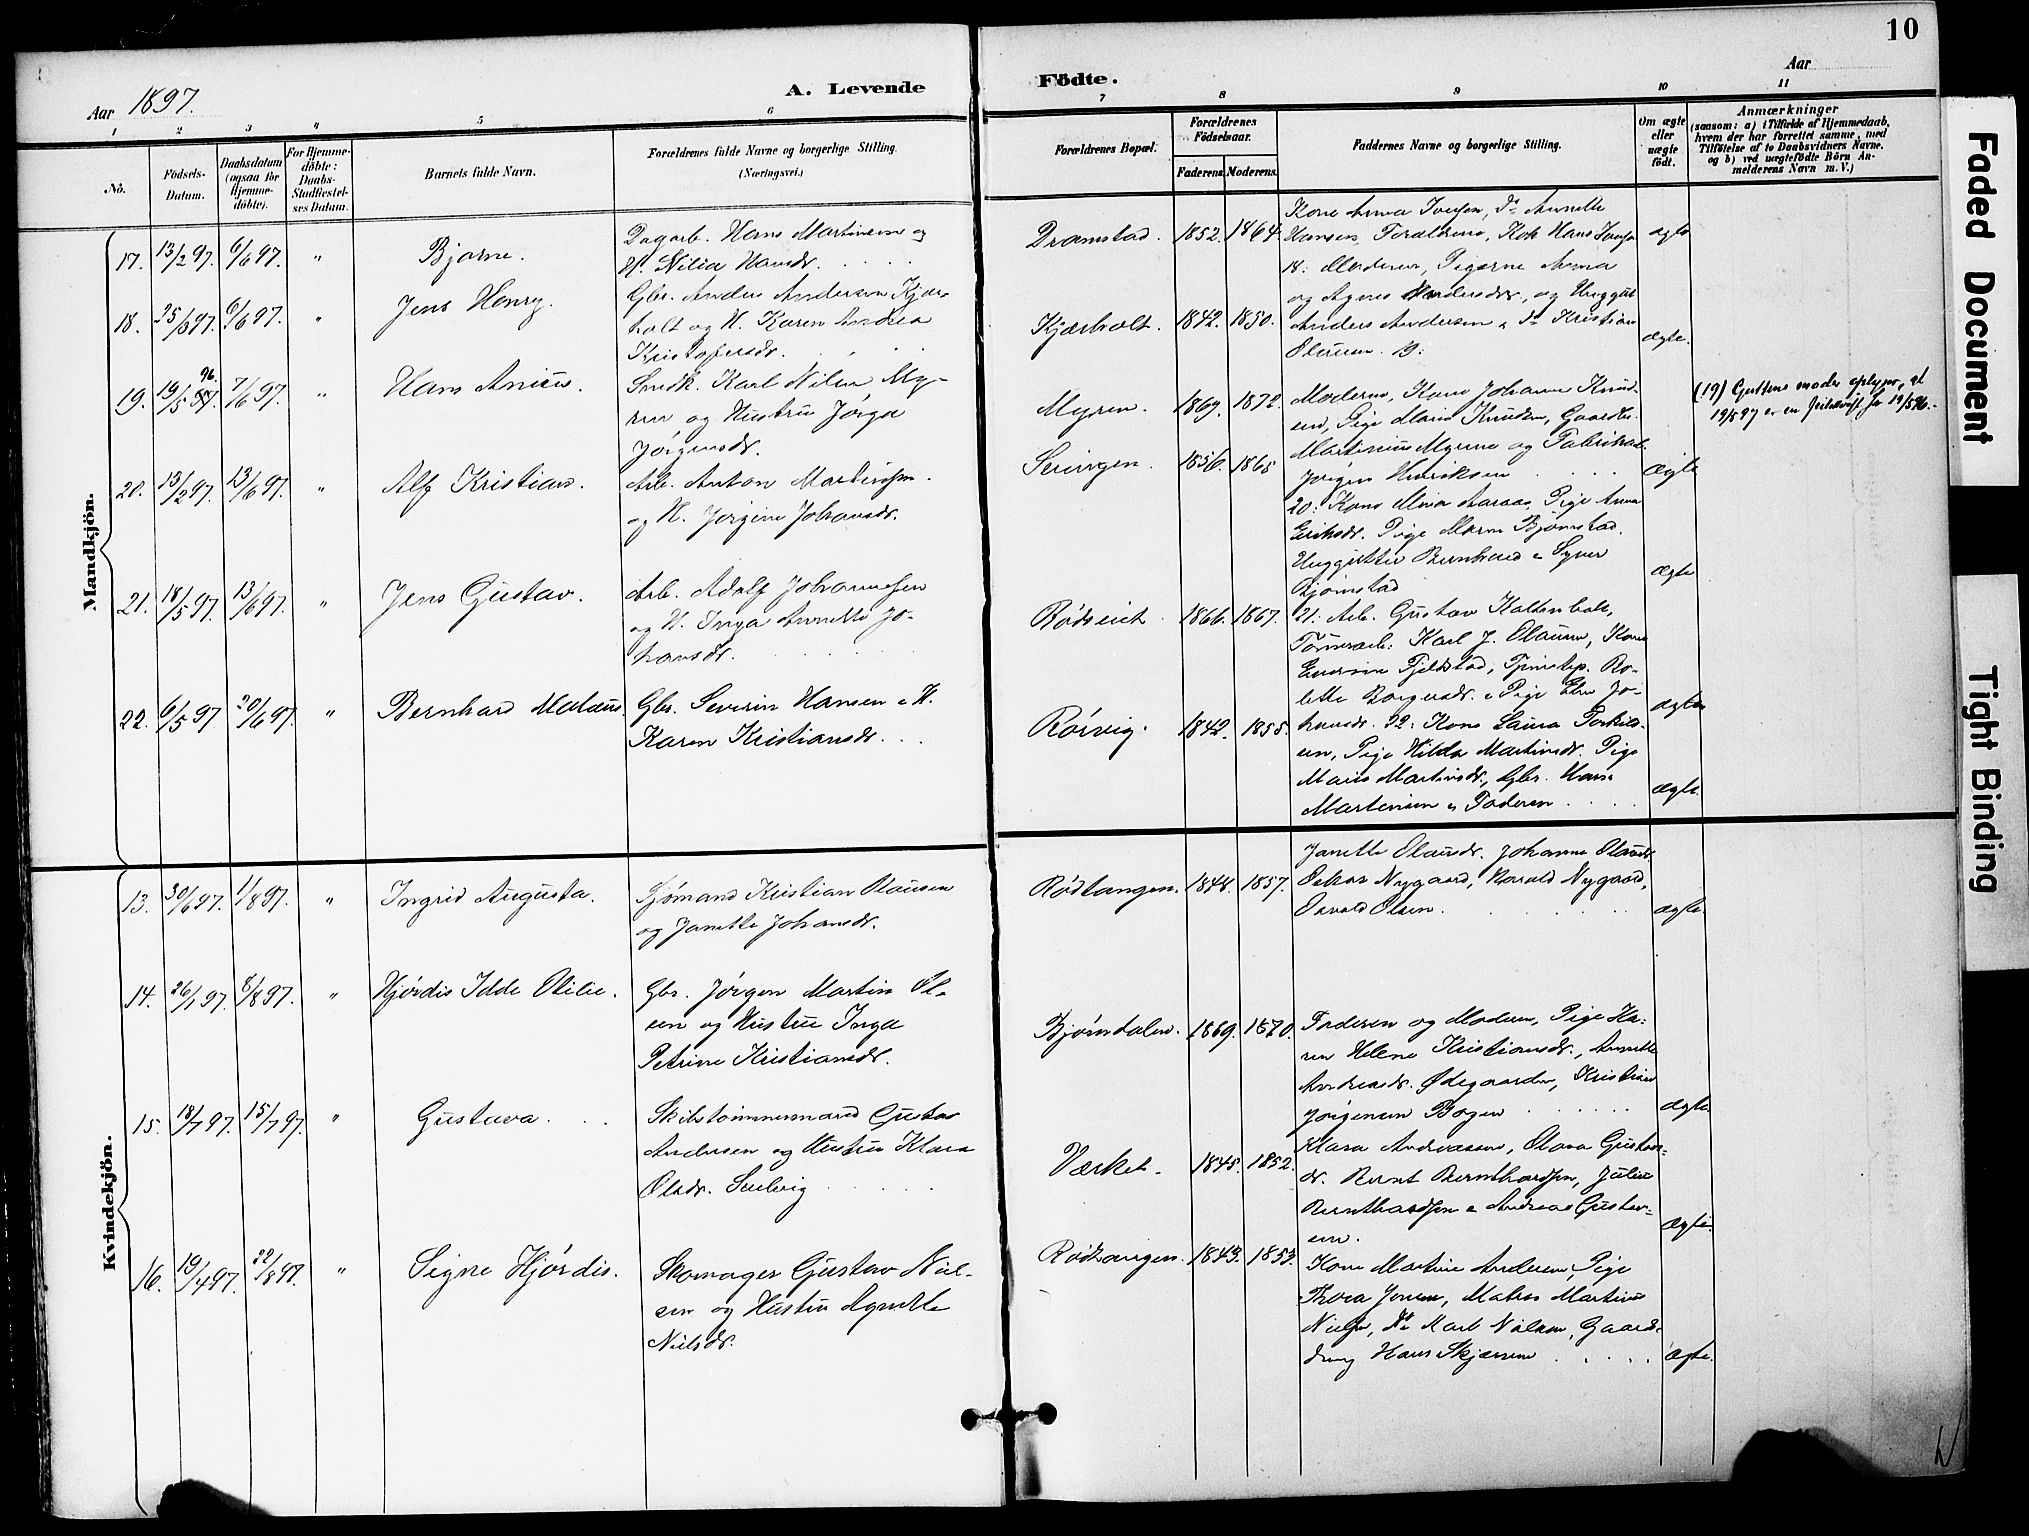 10
Aar 1897.
A. Levende
Födte.
Aar
1 2 3 4 5 6
7 8 9 10 11
No.
Födsels-
Datum.
Daabsdatum
(ogsaa för
Hjemme-
döbte).
For Hjemme-
döbte:
Daabs-
Stadfæstel-
ses Datum.
Barnets fulde Navn.
Forældrenes fulde Navne og borgerlige Stilling.
(Næringsvei.)
Forældrenes Bopæl.
Forældrenes
Födselsaar.
Faderens Moderens.
Faddernes Navne og borgerlige Stilling.
Om ægte
eller
uægte
födt.
Anmærkninger
(saasom: a) i Tilfælde af Hjemmedaab,
hvem der har forrettet samme, med
Tilföielse af to Daabsvidners Navne.
og b) ved uægtefödte Börn An-
melderens Navn m. V.)
Mandkjön.
17. 13/2 97. 6/6 97. " Bjarne.
Dagarb. Hans Martinsen og
H. Nilia Hansdr.
Dramstad. 1852. 1864.
Kone Anna Iversen, do Annette
Hansen, Forældrene, Hans
ægte
18. 25/3 97. 6/6 97. " Jens Henry.
Gbr. Anders Andersen Kjær-
holt og H. Karen Andrea
Kristofersdr.
Kjærholt. 1842. 1850.
18: Moderen, Pigerne Anna
og Agnes Andersdr., og Unggut
Anders Andersen & do Kristian
Olausen. 19:
ægte.
19. 19/5 97. 96. 7/6 97. " Hans Anius.
Smdk. Karl Nilsen My-
ren og Hustru Jörga
Jörgensdr.
Myren. 1869. 1872.
Moderen, Kone Johanne Knud-
sen, Pige Marie Knudsen, Gaardbr.
Martinius Myrene og Fabrikarb.
Jörgen Henriksen
Ægte
(19) Guttens moder oplyser, at
19/5 97 er en feilskrift for 19/5 96.-
20. 13/2 97. 13/6 97. " Alf Kristian.
Arb. Anton Martinsen.
og H. Jørgine Johansdr.
Seringen. 1856. 1865
20: Kone Mina Aaraas, Pige Anna
Eriksdr. Pige Maren Bjørnstad.
Unggutter Bernhard & Syver
Bjørnstad
Ægte
21. 18/5 97. 13/6 97. " Jens Gustav.
Arb. Adolf Johannesen
og H. Inga Annette Jo-
hansdr.
Rødseiet. 1866. 1867.
21: Arb. Gustav Kaldenbak,
Karl J. Olausen, Kone
Fjeldstad,
lette Borgersdr. & Pige Jo-
hansdr.
ægte
22. 6/5 97 20/6 97. " Bernhard
Gbr. Severin Hansen & H.
Karen Kristiansdr.
Rørvig. 1842. 1855.
22: Kone Laura Torkild-
sen, Pige Hilda Martinsdr. Pige
Marie Martinsdr., Gbr. Hans
Martinsen & Faderen
ægte.
Kvindekjön.
13. 30/6 97. 1/8 97. " Ingrid Augusta.
Sjømand Kristian Olausen
og Janette Johansdr.
Rødtangen. 1848. 1857.
Janette Olausdr. Johanne Olausdr.
Oskar Nygaard, Harald Nygaard,
Osvald Olsen.
ægte.
14. 26/1 97. 8/8 97. " Hjørdis Idde Otilie.
Gbr. Jørgen Martin Ol-
sen og Hustru Inga
Petrine Kristiansdr.
Bjørndalen. 1869. 1870.
Faderen og Moderen, Pige Ka-
ren Helene Kristiansdr., Annette
Andreasdr. Ødegaarden, Kristian
Jörgensen Bogen
ægte.
15. 18/7 97. 15/7 97. " Gustava.
Skibstømmermand Gustav
Andersen og Hustru Klara
Olsdr.
Værket. 1848. 1852.
Klara Andreassen, Olava Gustavs-
dr. Bernt Bernthardsen, Julius
Bernthardsen & Andreas Gustav-
sen.
Ægte.
16. 19/4 97. 22/8 97. " Signe Hjördis.
Skomager Gustav Niel-
sen og Hustru Agnette
Nielsdr.
Rødtangen. 1843. 1853.
Kone Martine Andersen, Pige
Thora Jensen, Matros Martin
do Karl Nilsen, Gaard-
dreng Hans Skjærsen
Ægte.
Faded Document
Tight Binding